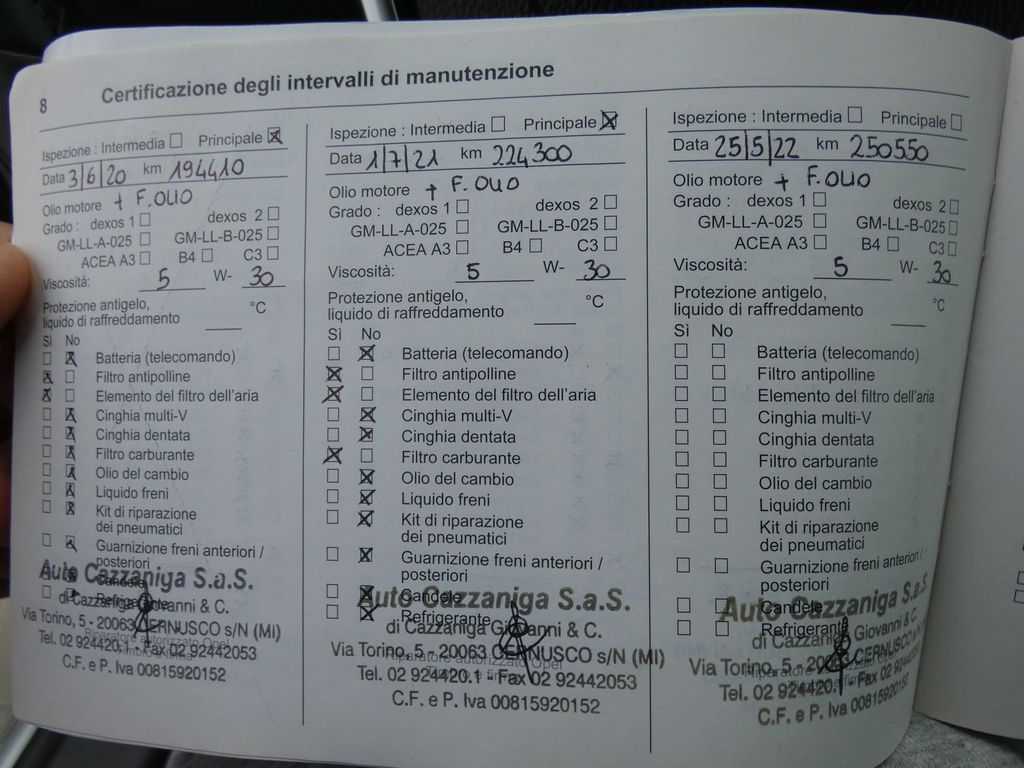 8 Certificazione degli intervalli di manutenzione
Ispezione : Intermedia ☐ Principale ☒
Data 3/6/20 km 194410
Olio motore + F.OLIO
Grado : dexos 1 ☐ dexos 2 ☐
GM-LL-A-025 ☐ GM-LL-B-025 ☐
ACEA A3 ☐ B4 ☐ C3 ☐
Viscosità: 5 W- 30
Protezione antigelo,
liquido di raffreddamento ___ °C
Sì No
☐ ☒ Batteria (telecomando)
☒ ☐ Filtro antipolline
☒ ☐ Elemento del filtro dell'aria
☐ ☒ Cinghia multi-V
☐ ☒ Cinghia dentata
☐ ☒ Filtro carburante
☐ ☒ Olio del cambio
☐ ☒ Liquido freni
☐ ☒ Kit di riparazione
dei pneumatici
☐ ☒ Guarnizione freni anteriori /
posteriori
Candele
Refrigerante
Auto Cazzaniga S.a.S.
di Cazzaniga Giovanni & C.
Via Torino, 5 - 20063 CERNUSCO s/N (MI)
Tel. 02 924420.1 - Fax 02 92442053
C.F. e P. Iva 00815920152
Ispezione : Intermedia ☐ Principale ☒
Data 1/7/21 km 224300
Olio motore + F.OLIO
Grado : dexos 1 ☐ dexos 2 ☐
GM-LL-A-025 ☐ GM-LL-B-025 ☐
ACEA A3 ☐ B4 ☐ C3 ☐
Viscosità: 5 W- 30
Protezione antigelo,
liquido di raffreddamento ___ °C
Sì No
☐ ☒ Batteria (telecomando)
☒ ☐ Filtro antipolline
☒ ☐ Elemento del filtro dell'aria
☐ ☒ Cinghia multi-V
☐ ☒ Cinghia dentata
☒ ☐ Filtro carburante
☐ ☒ Olio del cambio
☐ ☒ Liquido freni
☐ ☒ Kit di riparazione
dei pneumatici
☐ ☒ Guarnizione freni anteriori /
posteriori
☐ ☒ Candele
☐ ☒ Refrigerante
Auto Cazzaniga S.a.S.
di Cazzaniga Giovanni & C.
Riparatore autorizzato Opel
Via Torino, 5 - 20063 CERNUSCO s/N (MI)
Tel. 02 924420.1 Fax 02 92442053
C.F. e P. Iva 00815920152
Ispezione : Intermedia ☐ Principale ☐
Data 25/5/22 km 250550
Olio motore + F.OLIO
Grado : dexos 1 ☐ dexos 2 ☐
GM-LL-A-025 ☐ GM-LL-B-025 ☐
ACEA A3 ☐ B4 ☐ C3 ☐
Viscosità: 5 W- 30
Protezione antigelo,
liquido di raffreddamento ___ °C
Sì No
☐ ☐ Batteria (telecomando)
☐ ☐ Filtro antipolline
☐ ☐ Elemento del filtro dell'aria
☐ ☐ Cinghia multi-V
☐ ☐ Cinghia dentata
☐ ☐ Filtro carburante
☐ ☐ Olio del cambio
☐ ☐ Liquido freni
☐ ☐ Kit di riparazione
dei pneumatici
☐ ☐ Guarnizione freni anteriori /
posteriori
☐ ☐ Candele
☐ ☐ Refrigerante
Auto Cazzaniga S.a.S.
di Cazzaniga Giovanni & C.
Via Torino, 5 - 20063 CERNUSCO s/N
Tel. 02 924420.1 Fax 02 92442053
C.F. e P. Iva 00815920152